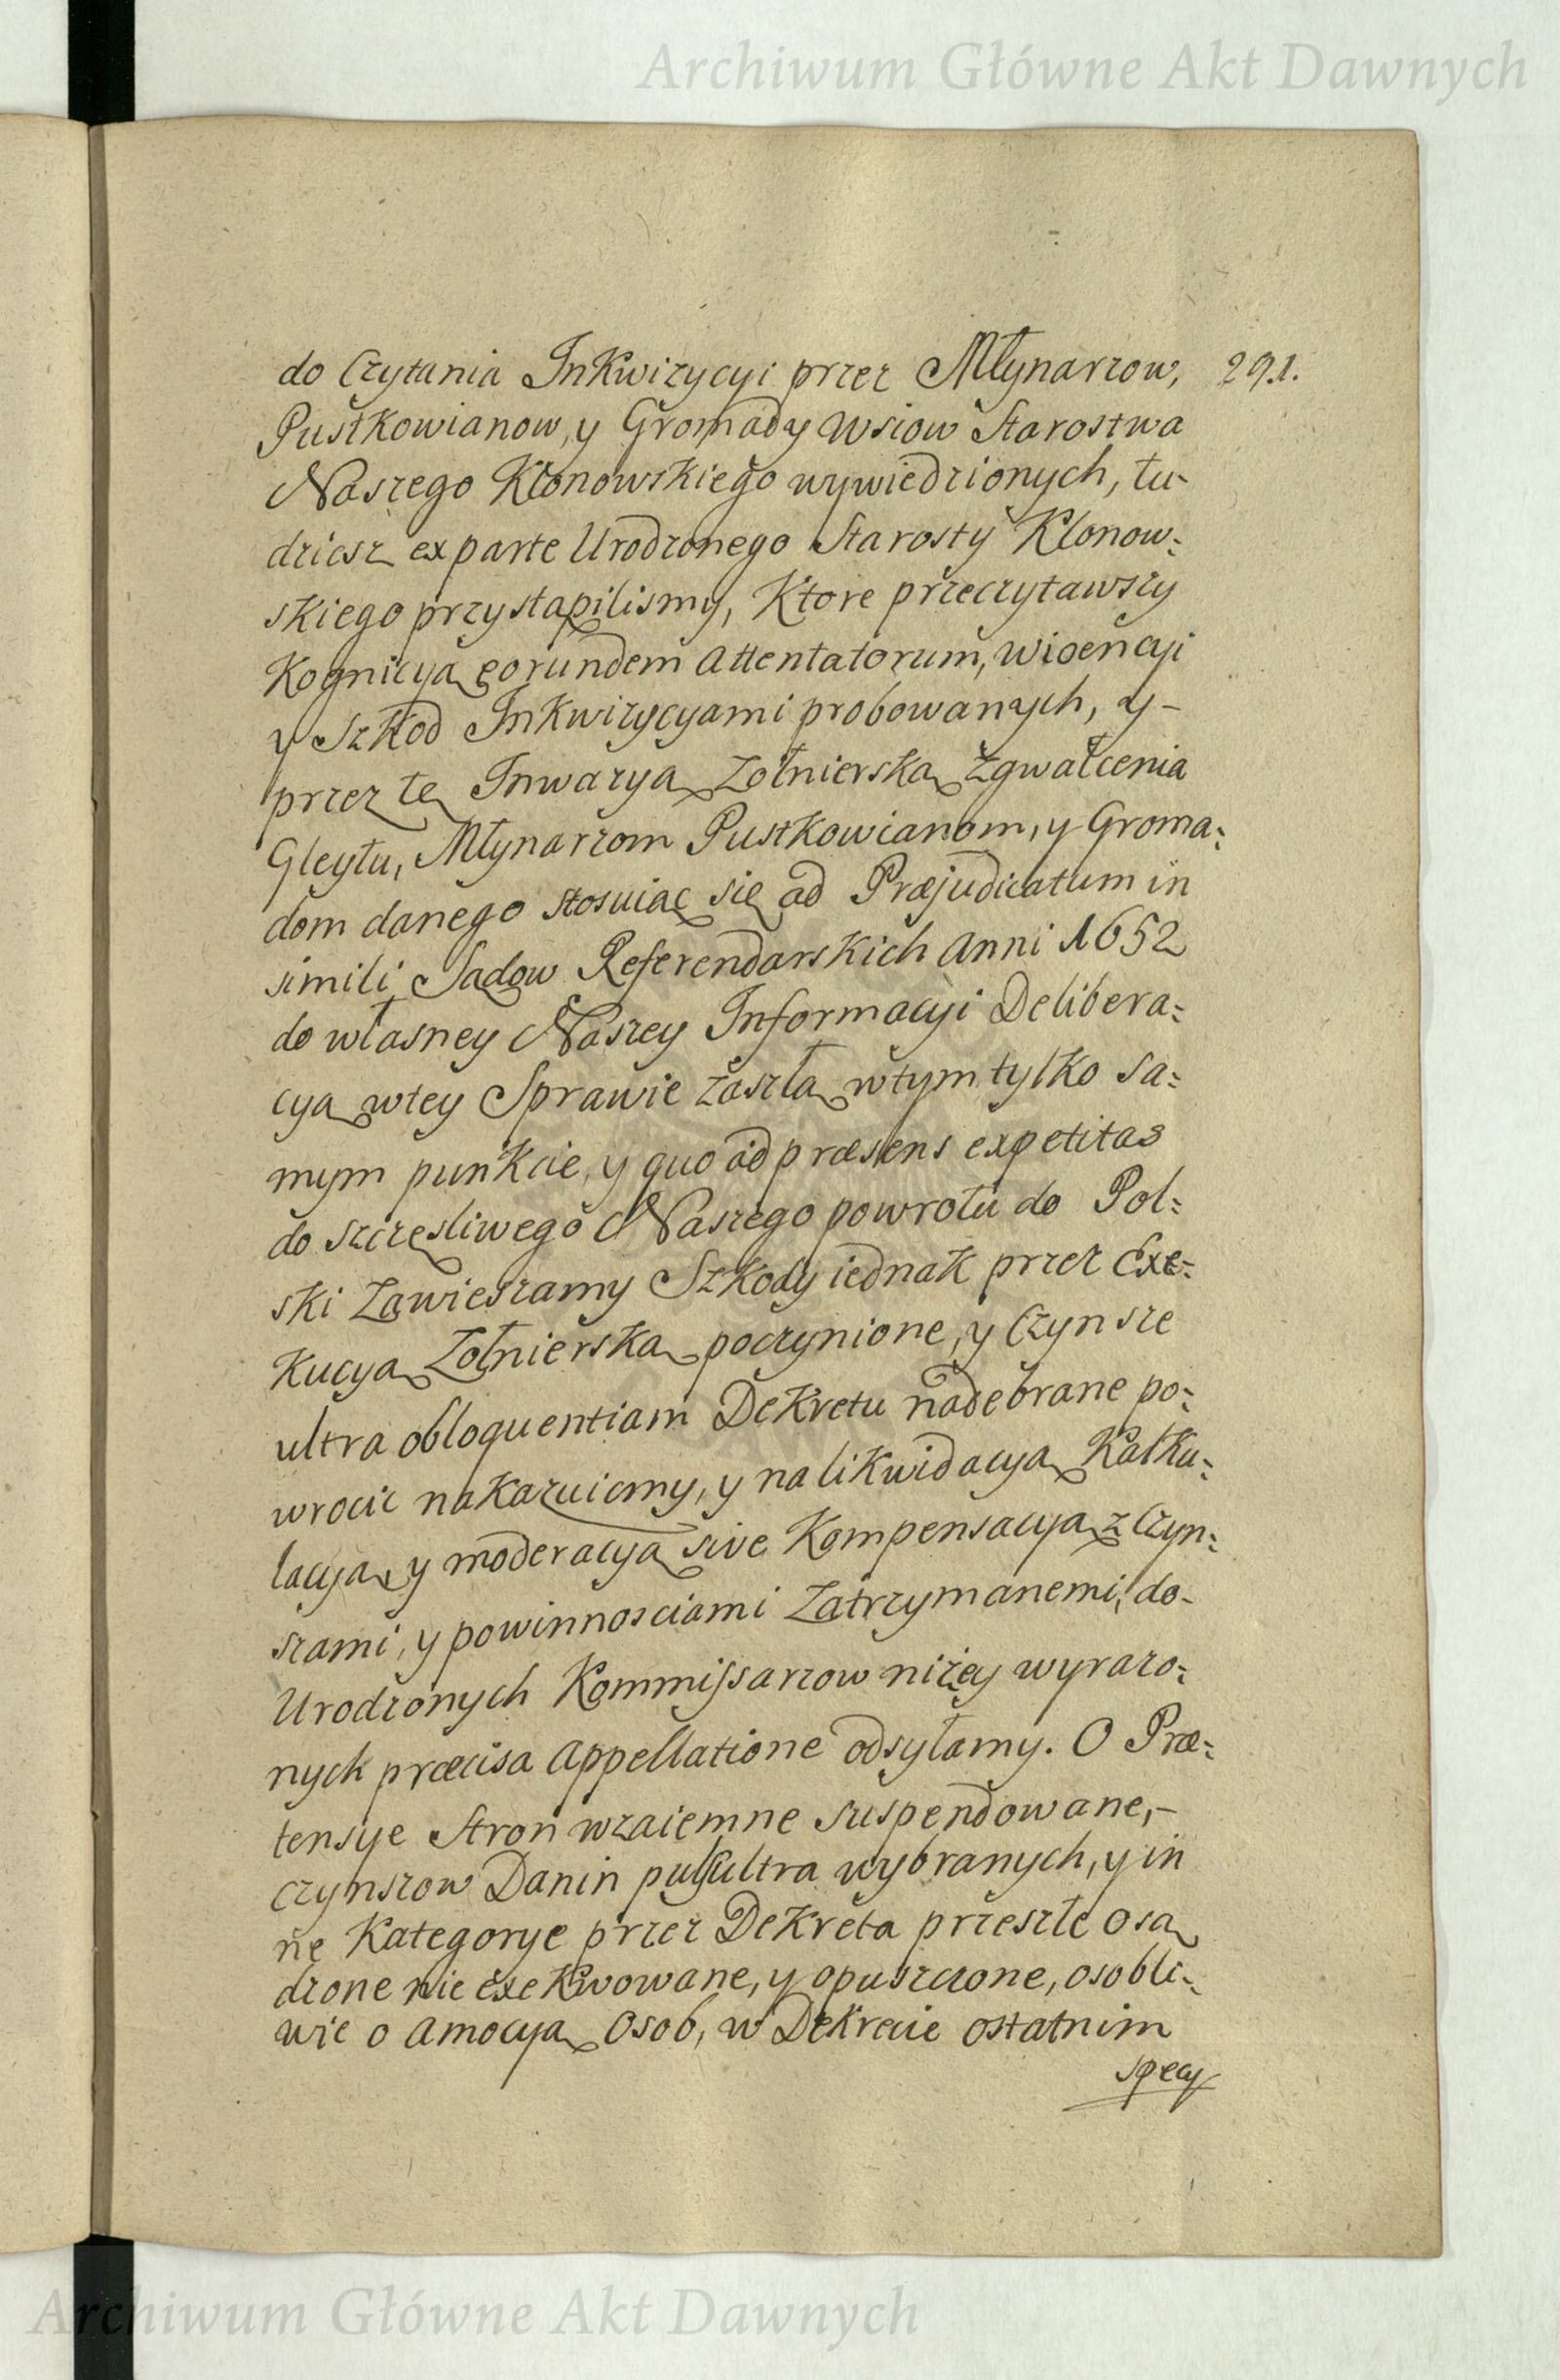 Archiwum Główne Akt Dawnych
do Czytania Inkwizycyi przez Młynarzow, 291.
Pustkowianow, y Gromady wsiow Starostwa
Naszego Kłonowskiego wywiedzionych, tu-
dziesz ex parte Urodzonego Starosty Klonow:
skiego przystąpilismy, Ktore przeczytawszy
Kognicyą eorundem Attentatorum, wioencyi
y Szkod Inkwizycyami probowanych, y-
przez tę Inwazyą Zołnierską Zgwałcenia
Gleytu, Młynarzom Pustkowianom, y Groma:
dom danego stosuiąc się ad Præjudicatum in
simili Sądow Referendarskich Anni 1652
do własney Naszey Informacyi Delibera:
cyą wtey Sprawie zaszłą wtym tylko sa:
mym punkcie, y quo ad præsens expetitas
do szczęsliwego Naszego powrotu do Pol:
ski Zawieszamy Szkody iednak przez Exe:
Kucyą Zołnierską poczynione, y Czynsze
ultra obloquentiam Dekretu nadebrane po:
wrocic nakazuiemy, y na likwidacyą Kalku:
lacyą, y moderacyą sive Kompensacyą z Czyn:
szami, y powinnosciami Zatrzymanemi, do-
Urodzonych Kommissarzow niżey wyrazo:
nych præcisa Appellatione odsyłamy. O Præ:
tensye Stron wzaiemne suspendowane,-
czynszow Danin ultra wybranych, y in
ne Kategorye przez Dekreta przeszłe osą
dzone nie exekwowane, y opuszczone, osobli:
wie o Amocyą Osob, w Dekrecie ostatnim
specy
Archiwum Główne Akt Dawnych